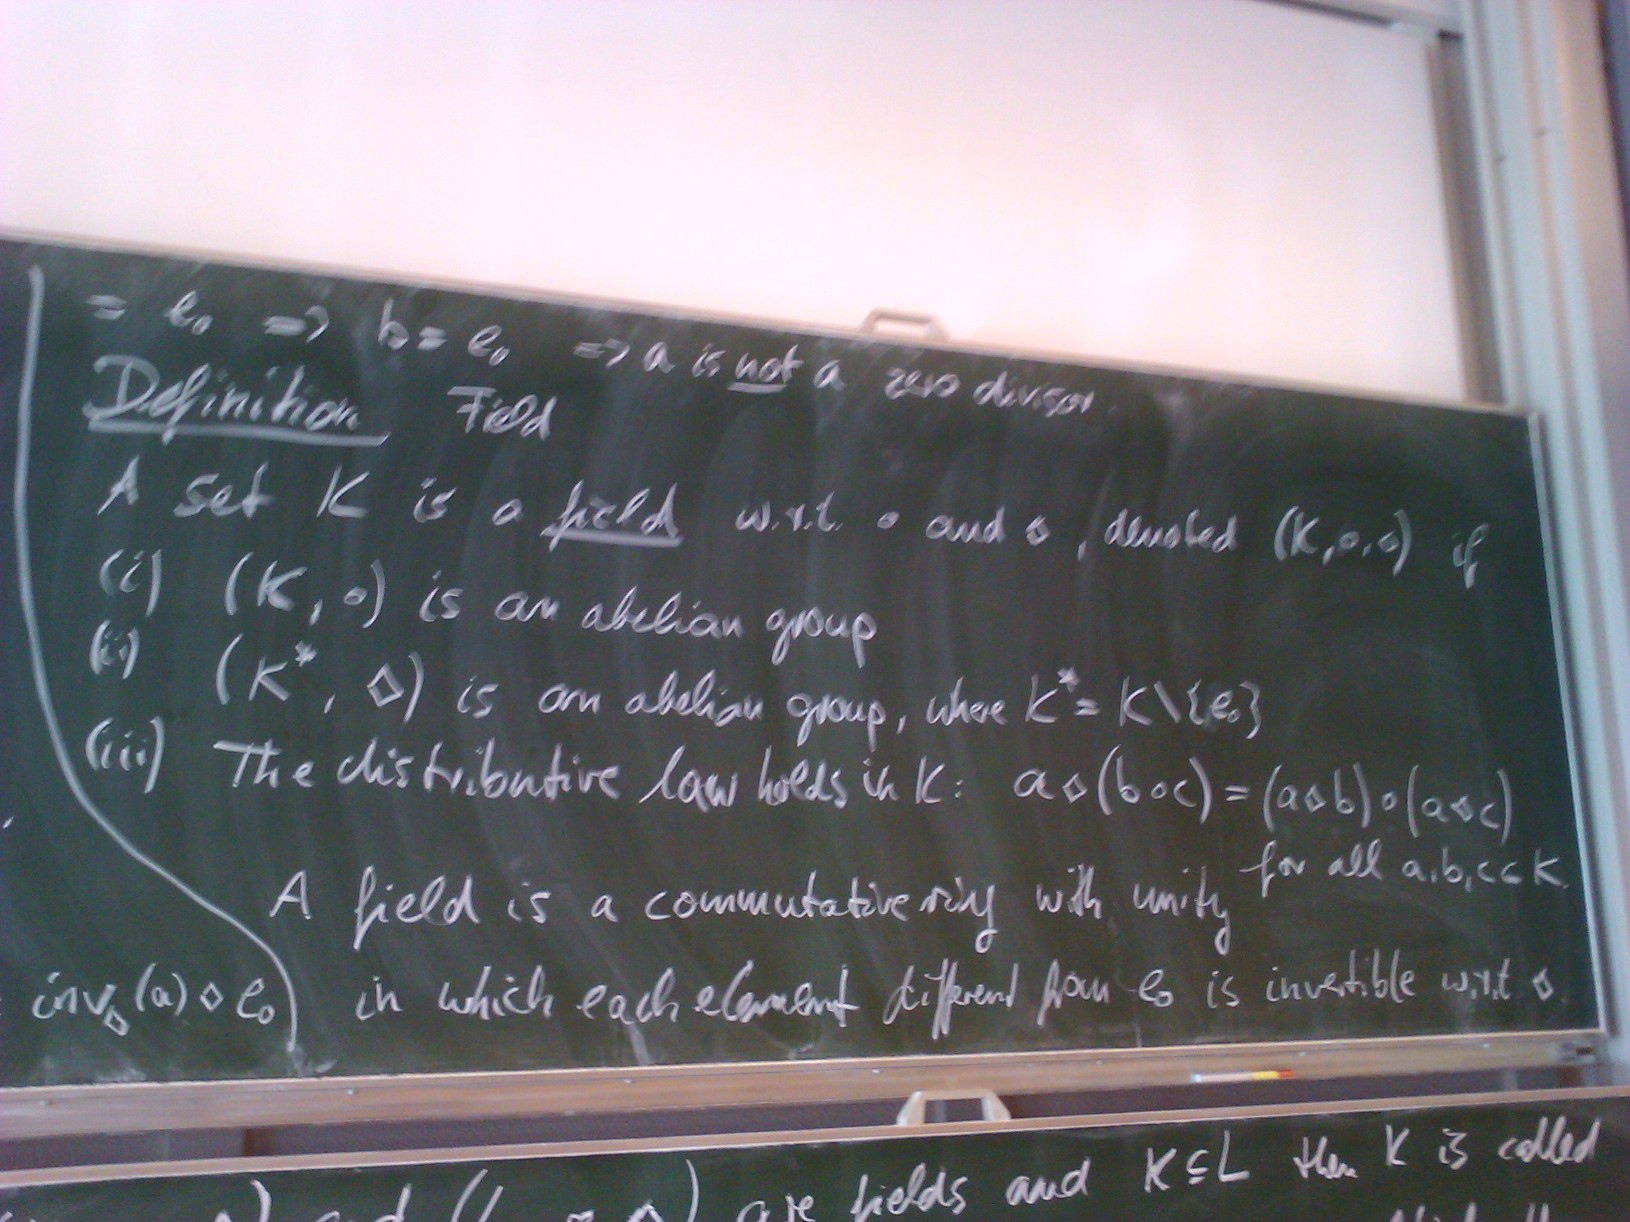 = e∘ => b = e∘ => a is not a zero divisor.
Definition Field
A set K is a field w.r.t. ∘ and ⋄, denoted (K,∘,⋄) if
(i) (K,∘) is an abelian group
(ii) (K*, ⋄) is an abelian group, where K* = K\{e∘}
(iii) The distributive law holds in K: a⋄(b∘c) = (a⋄b)∘(a⋄c)
for all a,b,c ∈ K.
A field is a commutative ring with unity
in which each element different from e∘ is invertible w.r.t ⋄.
inv⋄(a)⋄e∘
are fields and K⊆L then K is called